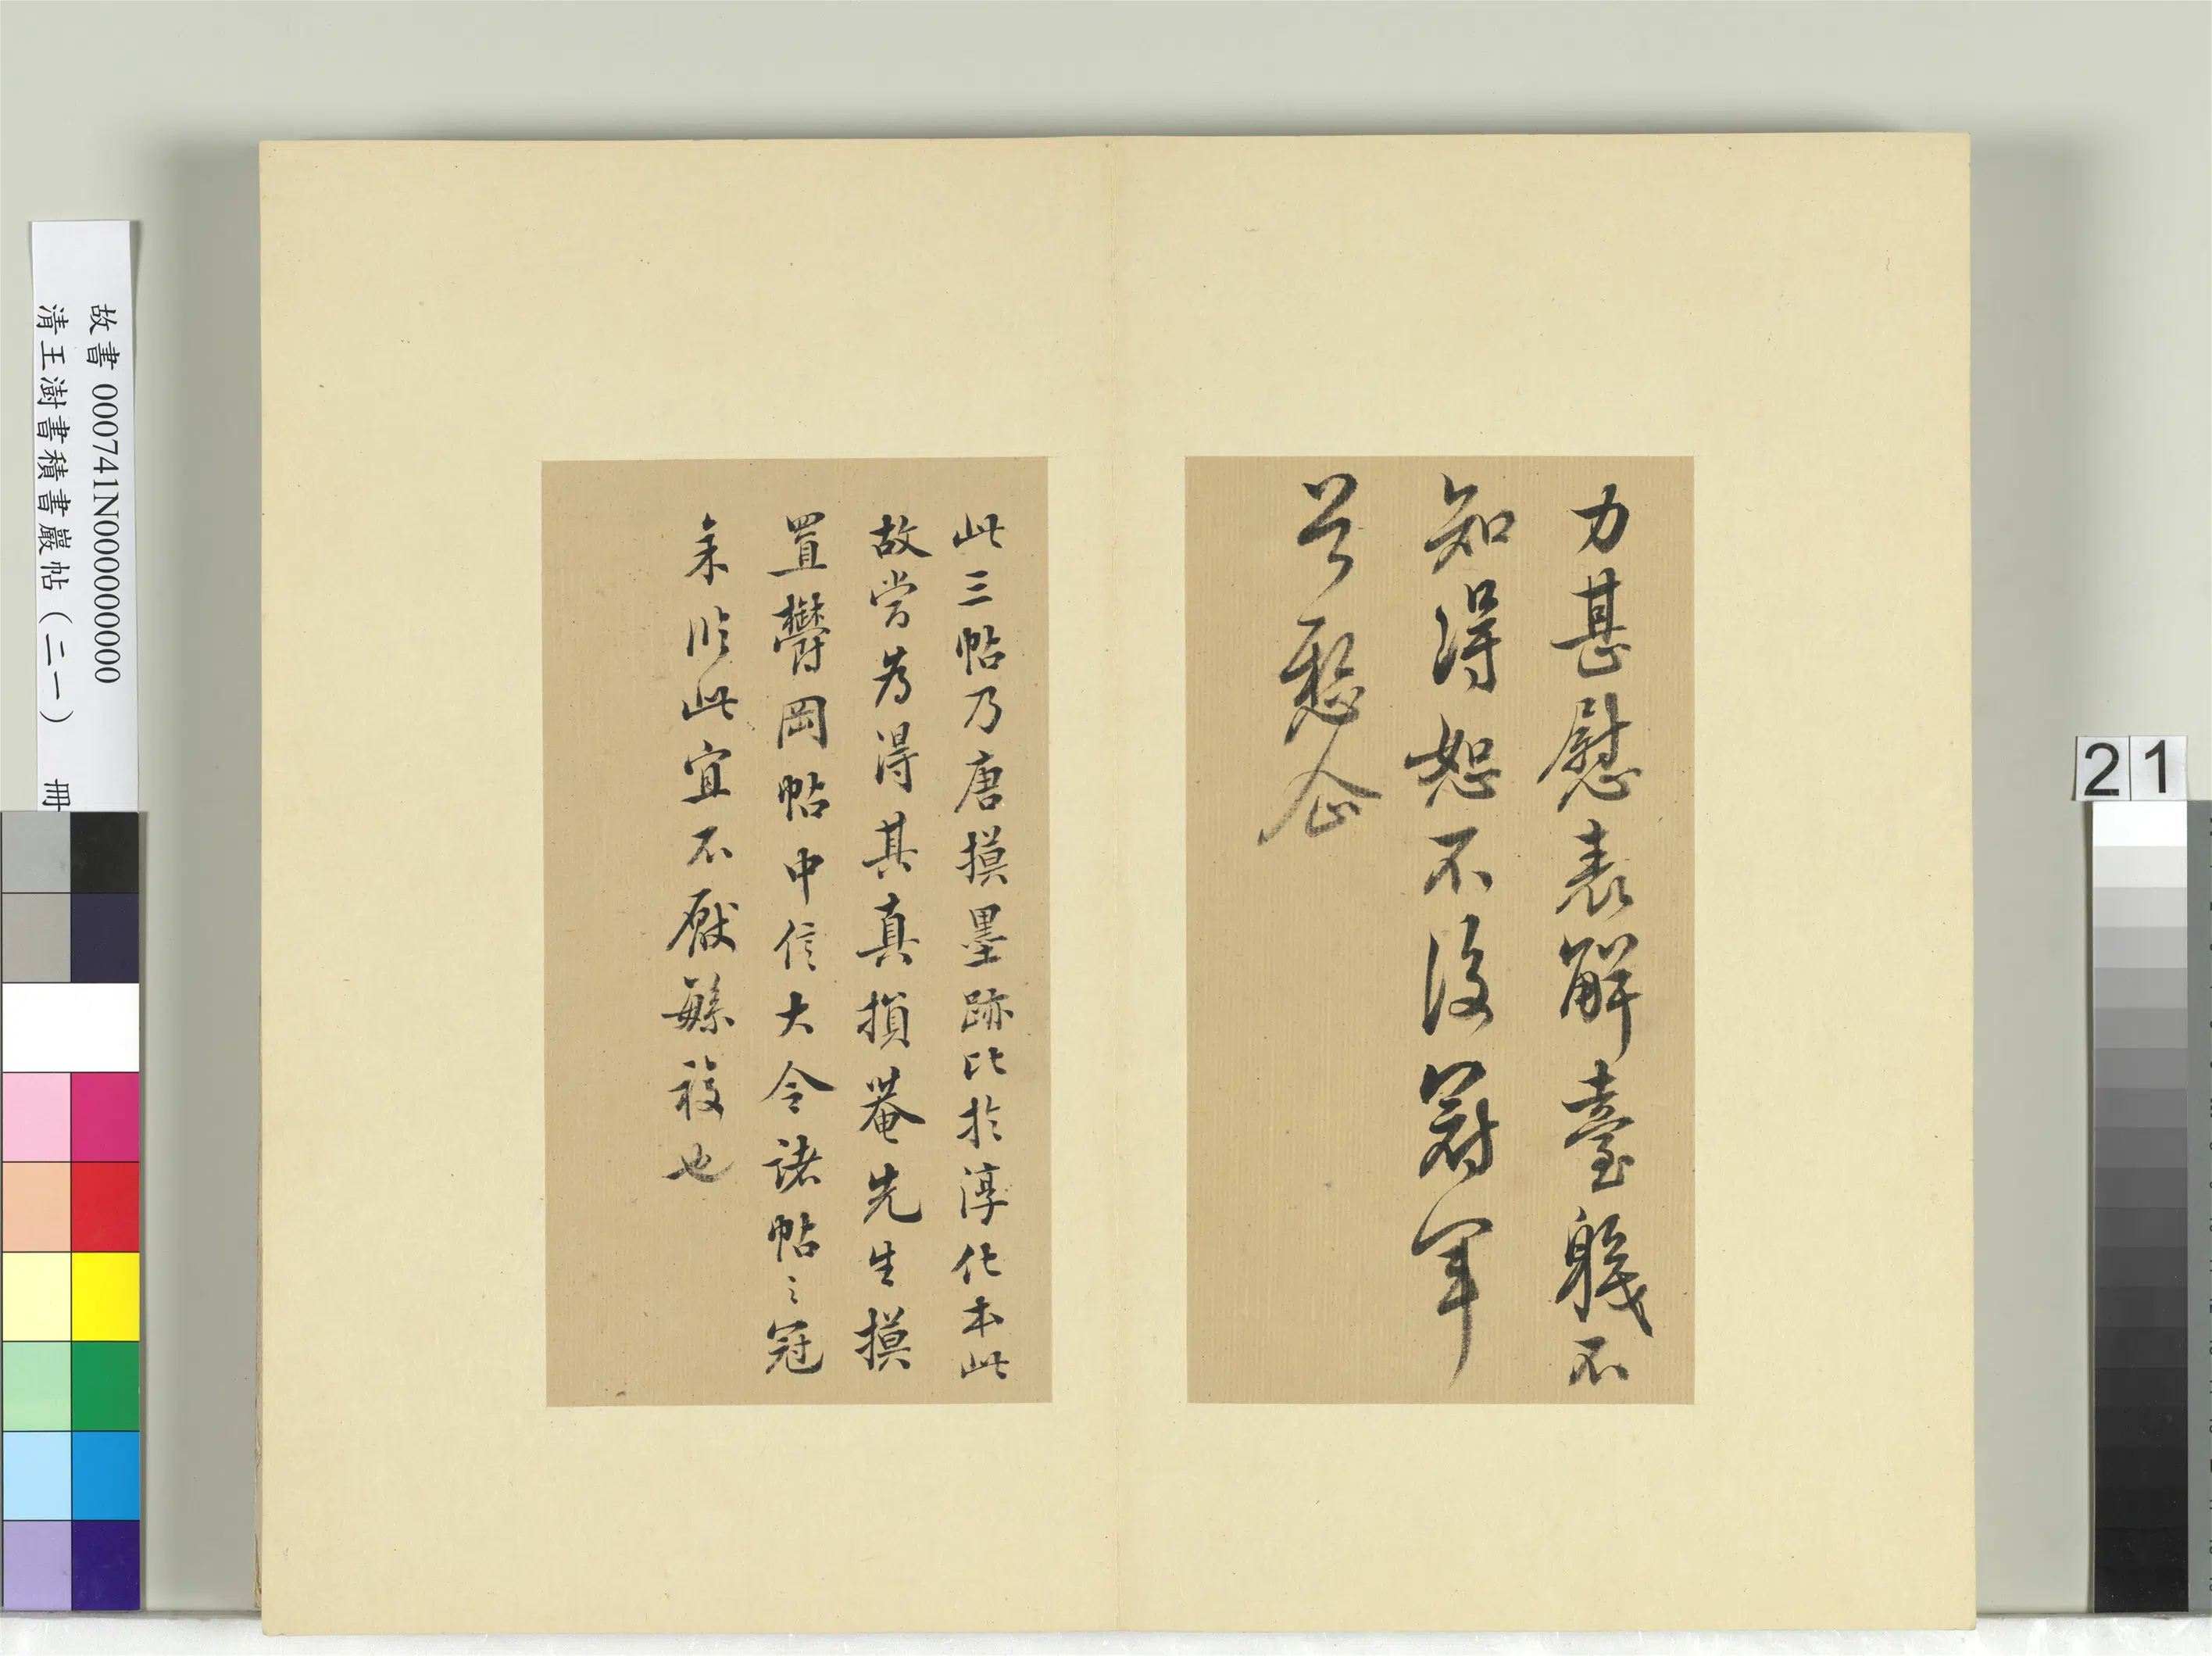 力甚慰表解臺職不
知得恕不後冠軍
故書 000741N000000000
清王澍書積書巖帖（二一） 冊
此三帖乃唐摸墨跡比於淳化本此
故當為得其真損菴先生摸
置欝岡帖中信大令諸帖之冠
余臨此宜不厭繁複也
21